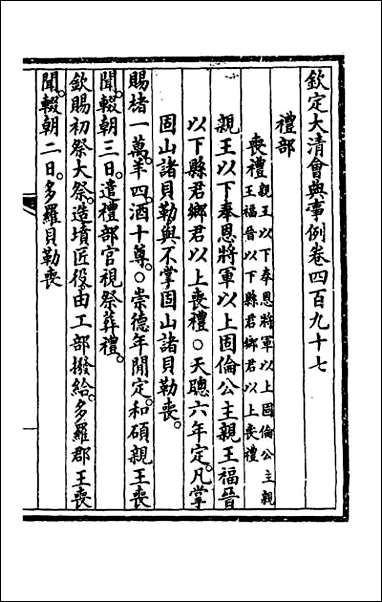 欽定大清會典事例卷四百九十七
禮部
喪禮親王以下奉恩將軍以上固倫公主親
王福晉以下縣君鄉君以上喪禮
親王以下奉恩將軍以上固倫公主親王福晉
以下縣君鄉君以上喪禮○天聰六年定凡掌
固山諸貝勒與不掌固山諸貝勒喪
賜楮一萬羊四酒十尊○崇德年閒定和碩親王喪
聞輟朝三日遣禮部官視祭葬禮
欽賜初祭大祭造墳匠役由工部撥給多羅郡王喪
聞輟朝二日多羅貝勒喪